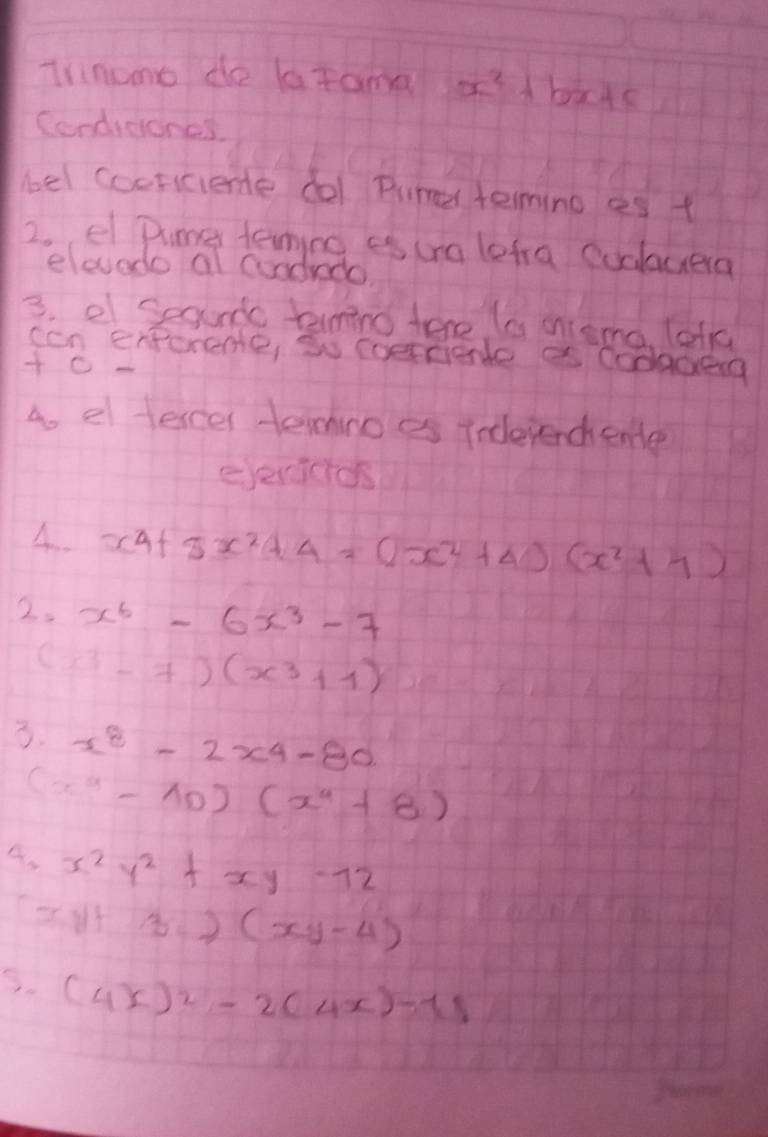 Trinomo de la forma x² + bx + c
Condiciones.
1. el coeficiente del Primer termino es 1
2. el Primer termino es una letra cualquiera
elevado al cuadrado.
3. el Segundo termino tiene la misma letra
con exponente, su coeficiente es cualquiera
+ o -
4. el tercer termino es independiente
ejercicios
1. x⁴ + 5x² + 4 = (x² + 4) (x² + 1)
2. x⁶ - 6x³ - 7
(x³ - 7) (x³ + 1)
3. x⁸ - 2x⁴ - 80.
(x⁴ - 10) (x⁴ + 8)
4. x² y² + xy - 12
xy + 3) (xy - 4)
5. (4x)² - 2(4x) - 15